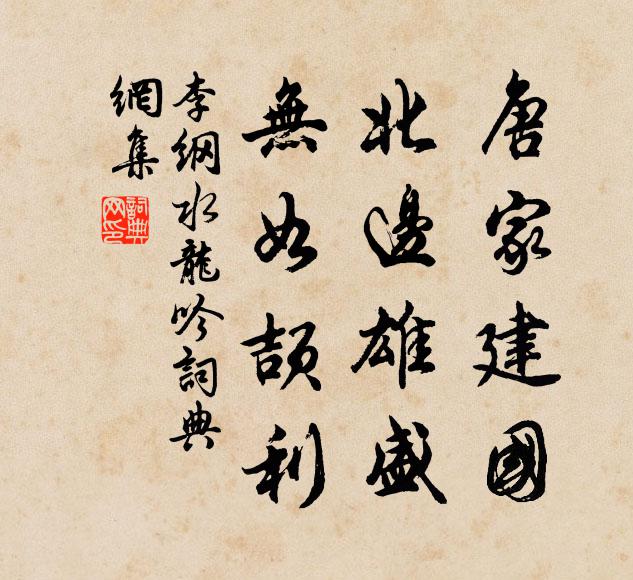 唐家建國
北邊雄盛
無如頡利
李綱水龍吟詞典
網集
詞典網印